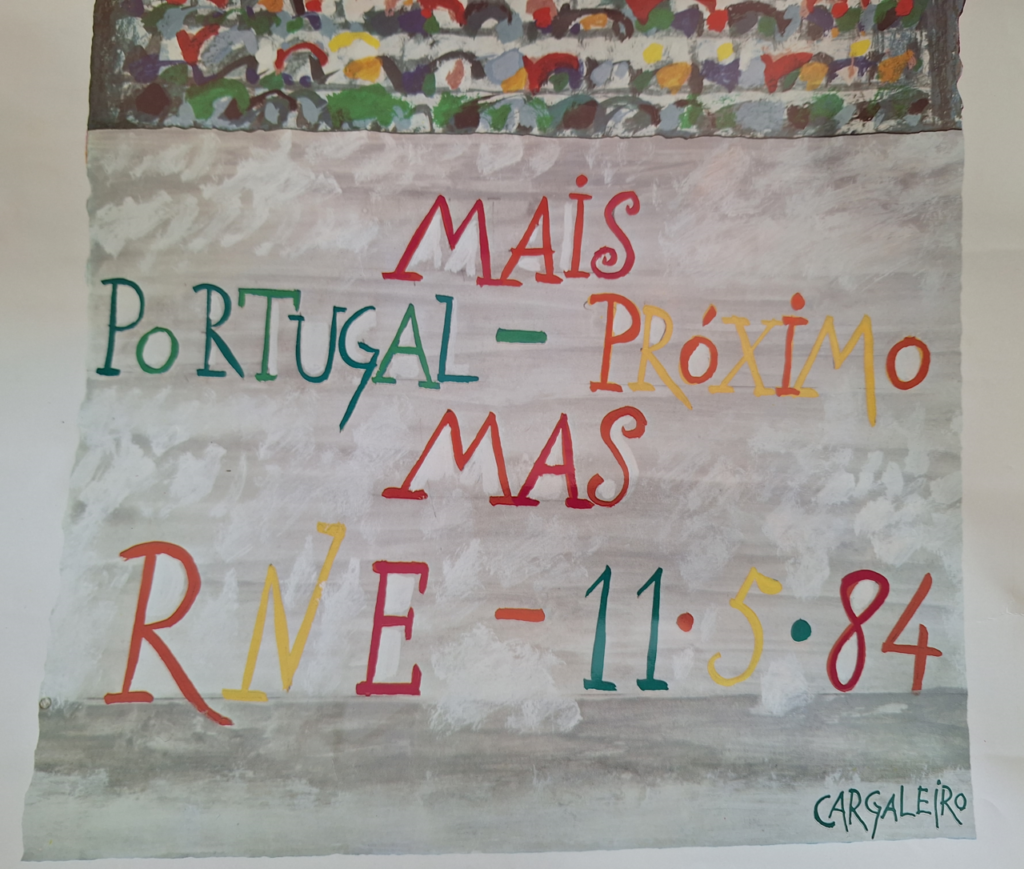 MAiS
PoRTUGAL - PRÓXiMO
MAS
RNE - 11·5·84
CARGALEiRO